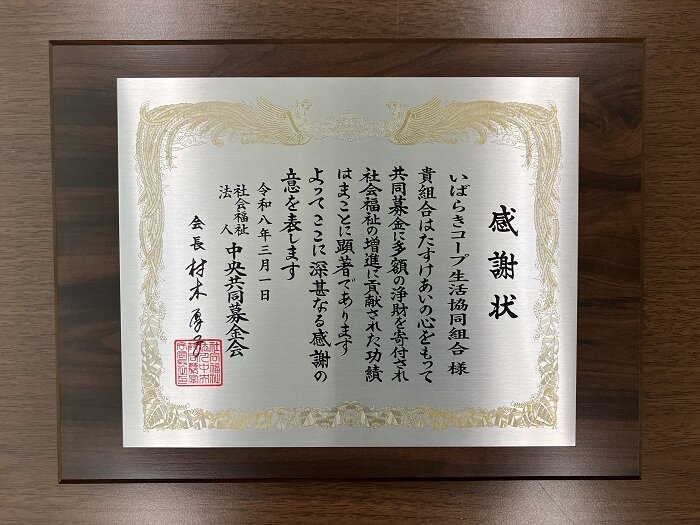 感謝状
いばらきコープ生活協同組合 様
貴組合はたすけあいの心をもって
共同募金に多額の浄財を寄付され
社会福祉の増進に貢献された功績
はまことに顕著であります
よってここに深甚なる感謝の
意を表します
令和八年三月一日
社会福祉
法人
中央共同募金会
会長 村木厚子